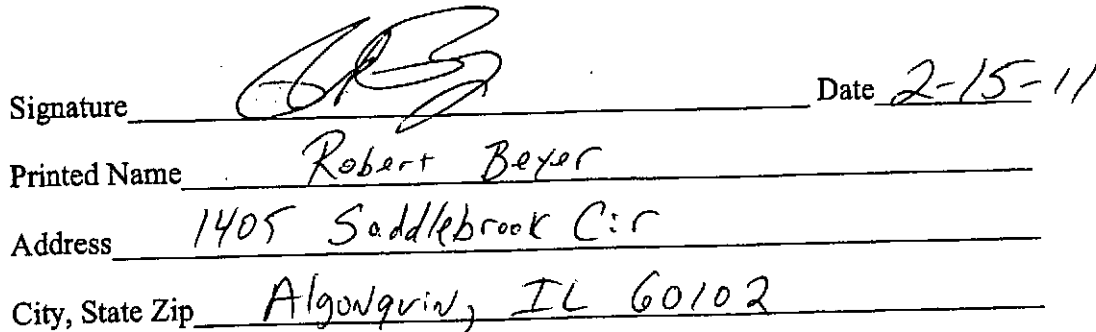 Signature Date 2-15-11
Printed Name Robert Beyer
Address 1405 Saddlebrook Cir
City, State Zip Algonquin, IL 60102